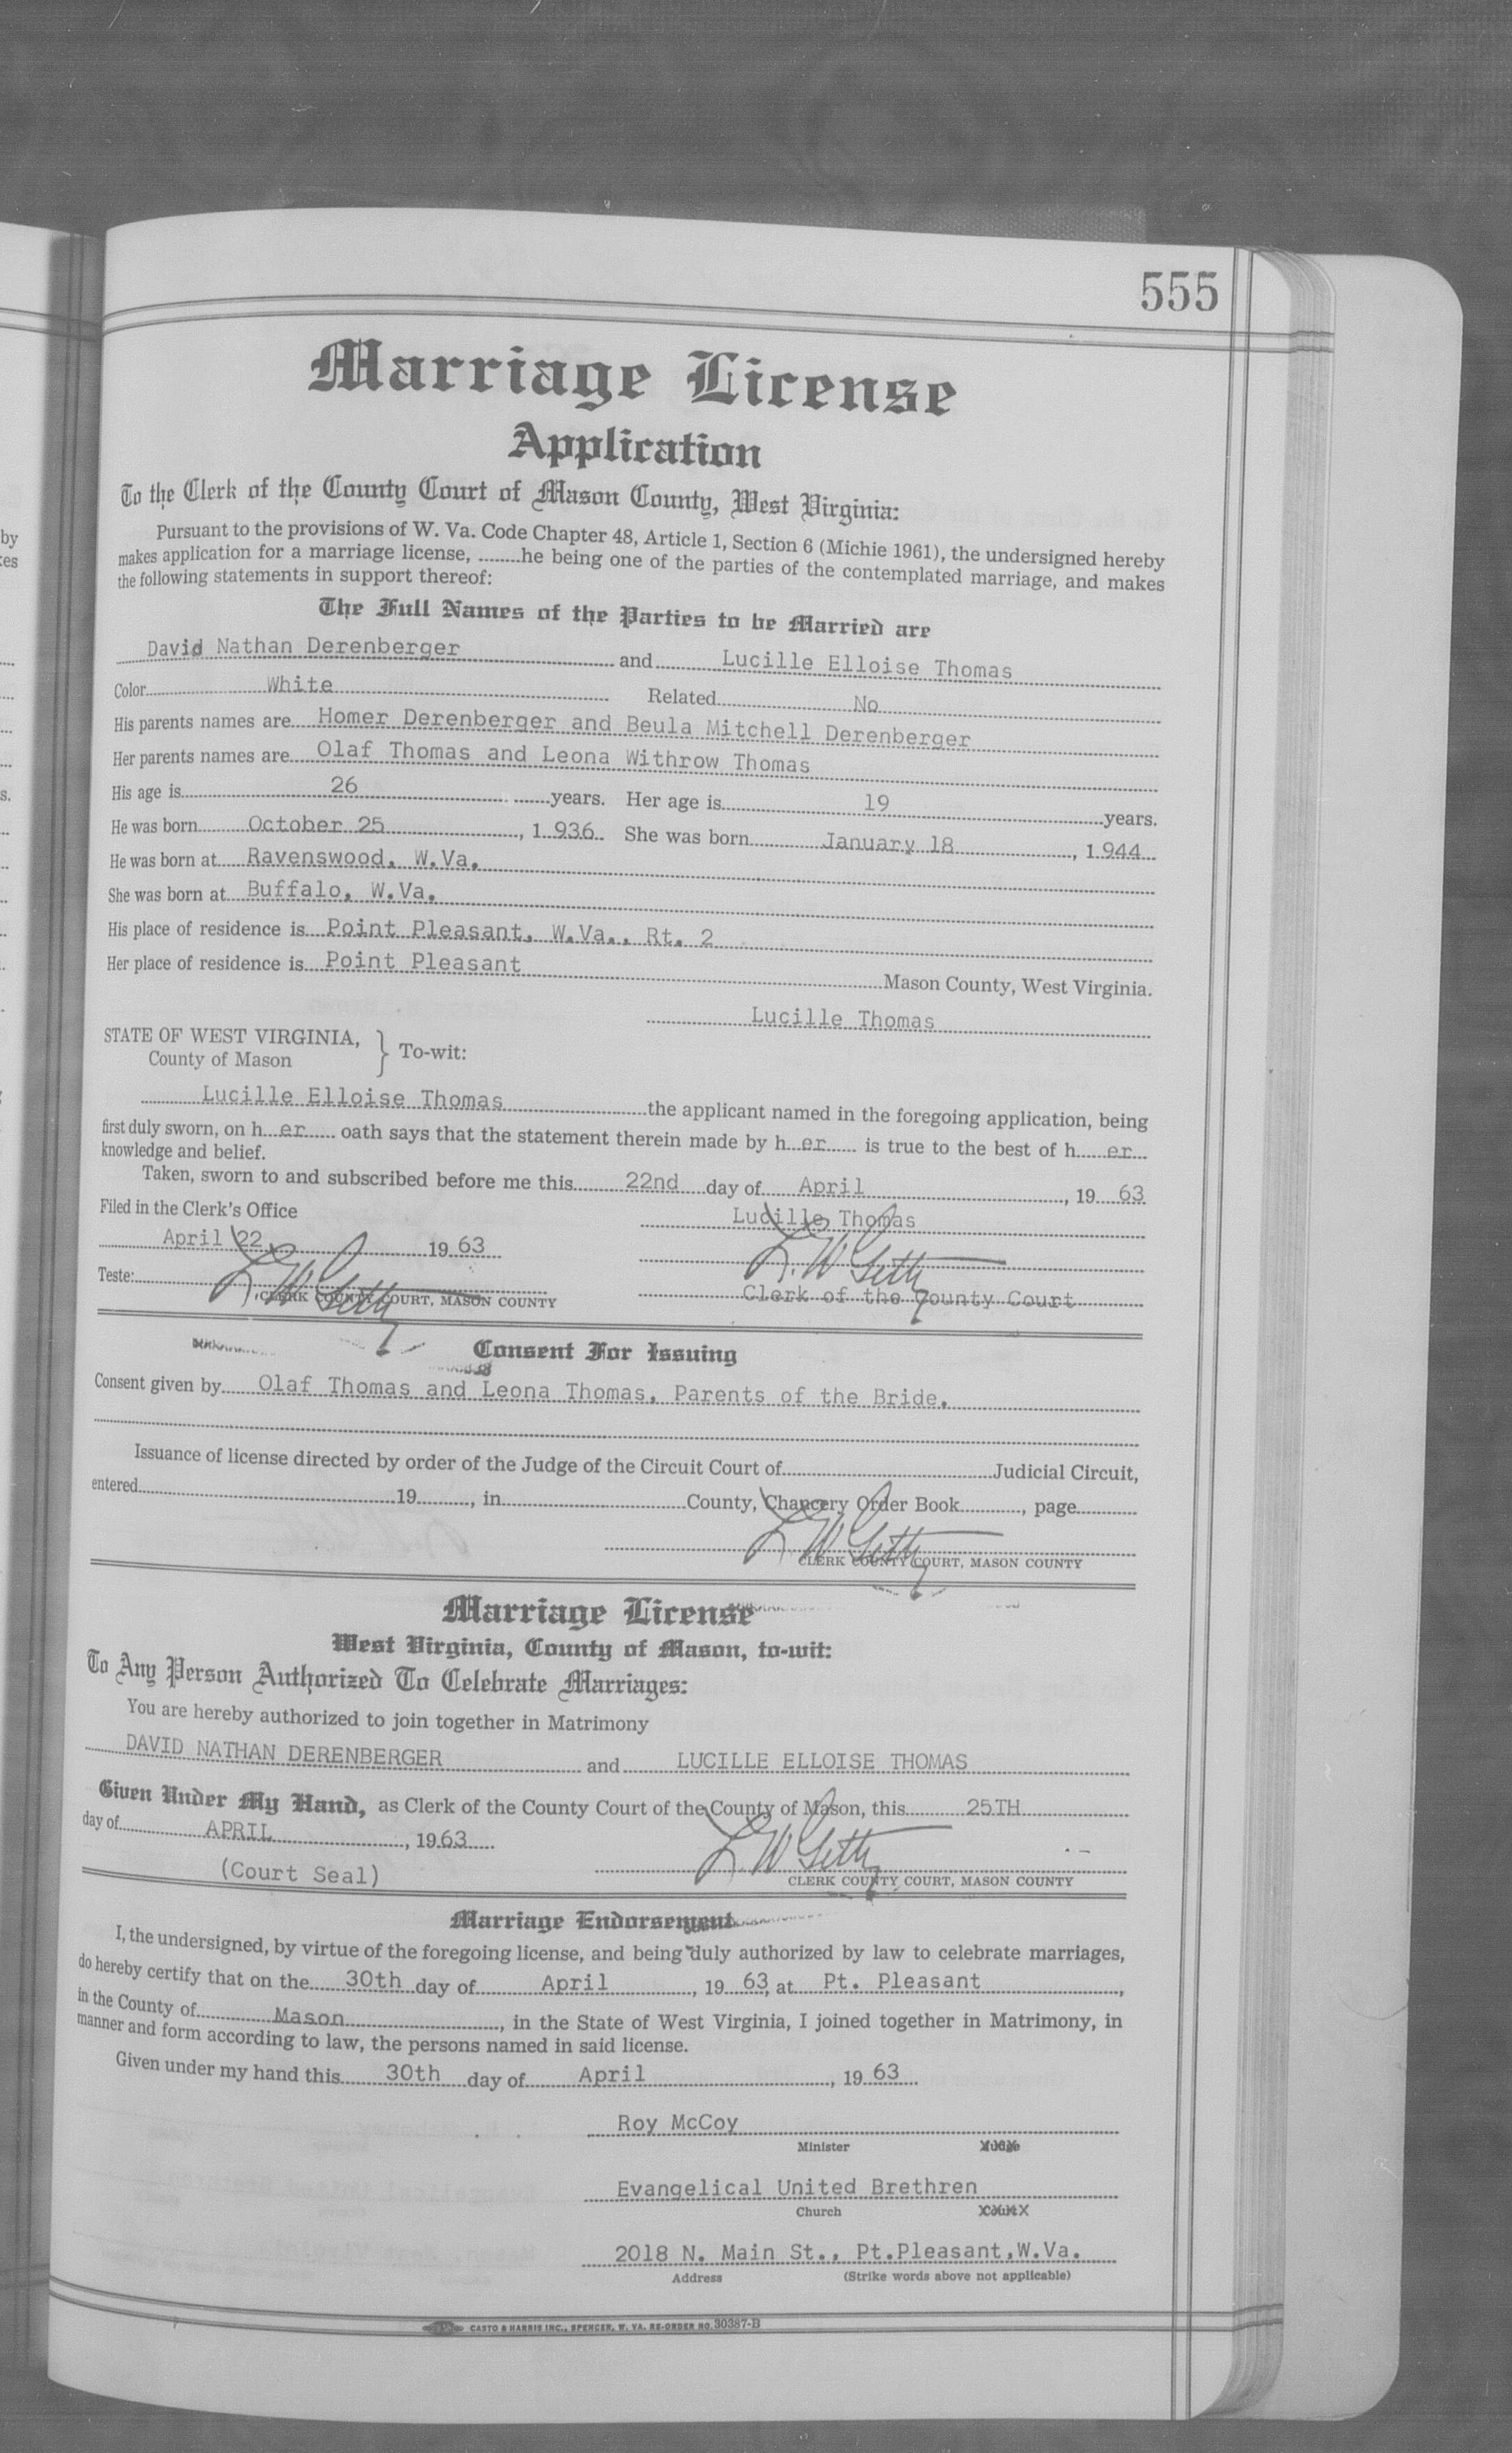 555
Marriage License
Application
To the Clerk of the County Court of Mason County, West Virginia:
Pursuant to the provisions of W. Va. Code Chapter 48, Article 1, Section 6 (Michie 1961), the undersigned hereby
makes application for a marriage license, ........he being one of the parties of the contemplated marriage, and makes
the following statements in support thereof:
The Full Names of the Parties to be Married are
David Nathan Derenberger and Lucille Elloise Thomas
Color White Related No
His parents names are Homer Derenberger and Beula Mitchell Derenberger
Her parents names are Olaf Thomas and Leona Withrow Thomas
His age is 26 years. Her age is 19 years.
He was born October 25, 1 936 She was born January 18, 1 944
He was born at Ravenswood, W.Va.
She was born at Buffalo, W.Va.
His place of residence is Point Pleasant, W.Va., Rt. 2
Her place of residence is Point Pleasant Mason County, West Virginia.
Lucille Thomas
STATE OF WEST VIRGINIA,
County of Mason } To-wit:
Lucille Elloise Thomas the applicant named in the foregoing application, being
first duly sworn, on h er oath says that the statement therein made by h er is true to the best of h er
knowledge and belief.
Taken, sworn to and subscribed before me this 22nd day of April, 19 63
Filed in the Clerk's Office
Lucille Thomas
April 22, 19 63
L. W. Getty
Teste: L. W. Getty
CLERK COUNTY COURT, MASON COUNTY
Clerk of the County Court
Consent For Issuing
Consent given by Olaf Thomas and Leona Thomas, Parents of the Bride.
Issuance of license directed by order of the Judge of the Circuit Court of Judicial Circuit,
entered 19, in County, Chancery Order Book, page
L. W. Getty
CLERK COUNTY COURT, MASON COUNTY
Marriage License
West Virginia, County of Mason, to-wit:
To Any Person Authorized To Celebrate Marriages:
You are hereby authorized to join together in Matrimony
DAVID NATHAN DERENBERGER and LUCILLE ELLOISE THOMAS
Given Under My Hand, as Clerk of the County Court of the County of Mason, this 25TH
day of APRIL, 19 63
L. W. Getty
(Court Seal)
CLERK COUNTY COURT, MASON COUNTY
Marriage Endorsement
I, the undersigned, by virtue of the foregoing license, and being duly authorized by law to celebrate marriages,
do hereby certify that on the 30th day of April, 19 63, at Pt. Pleasant,
in the County of Mason, in the State of West Virginia, I joined together in Matrimony, in
manner and form according to law, the persons named in said license.
Given under my hand this 30th day of April, 19 63
Roy McCoy
Minister Judge
Evangelical United Brethren
Church Court
2018 N. Main St., Pt.Pleasant,W.Va.
Address (Strike words above not applicable)
CASTO & HARRIS INC., SPENCER, W. VA. RE-ORDER NO. 30387-B